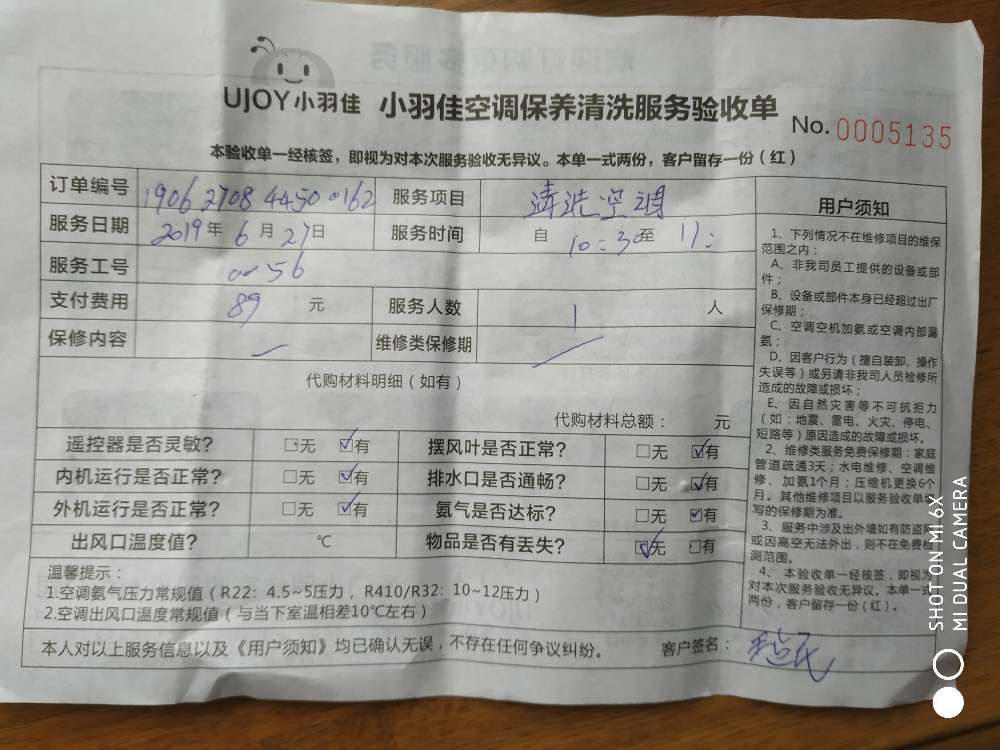 UJOY小羽佳 小羽佳空调保养清洗服务验收单
No. 0005135
本验收单一经核签，即视为对本次服务验收无异议。本单一式两份，客户留存一份（红）
订单编号 1906 2708 4450 0162 服务项目 清洗空调
服务日期 2019年 6月 27日 服务时间 自 10:30至 11:
服务工号 0056
支付费用 89 元 服务人数 1 人
保修内容 维修类保修期
代购材料明细（如有）
代购材料总额： 元
遥控器是否灵敏？ □无 ☑有 摆风叶是否正常？ □无 ☑有
内机运行是否正常？ □无 ☑有 排水口是否通畅？ □无 ☑有
外机运行是否正常？ □无 ☑有 氨气是否达标？ □无 ☑有
出风口温度值？ ℃ 物品是否有丢失？ ☑无 □有
温馨提示：
1.空调氨气压力常规值（R22：4.5~5压力，R410/R32：10~12压力）
2.空调出风口温度常规值（与当下室温相差10℃左右）
本人对以上服务信息以及《用户须知》均已确认无误，不存在任何争议纠纷。 客户签名：
用户须知
1、下列情况不在维修项目的维保
范围之内：
A、非我司员工提供的设备或部
件；
B、设备或部件本身已经超过出厂
保修期；
C、空调空机加氨或空调内部漏
氨；
D、因客户行为（擅自装卸、操作
失误等）或另请非我司人员检修所
造成的故障或损坏；
E、因自然灾害等不可抗拒力
（如：地震、雷电、火灾、停电、
短路等）原因造成的故障或损坏。
2、维修类服务免费保修期：家庭
管道疏通3天；水电维修、空调维
修、加氨1个月；压缩机更换6个
月。其他维修项目以服务验收单填
写的保修期为准。
3、服务中涉及出外墙如有防盗网
或因高空无法外出，则不在免费检
测范围。
4、本验收单一经核签，即视为
对本次服务验收无异议。本单一式
两份，客户留存一份（红）。
SHOT ON MI 6X
MI DUAL CAMERA